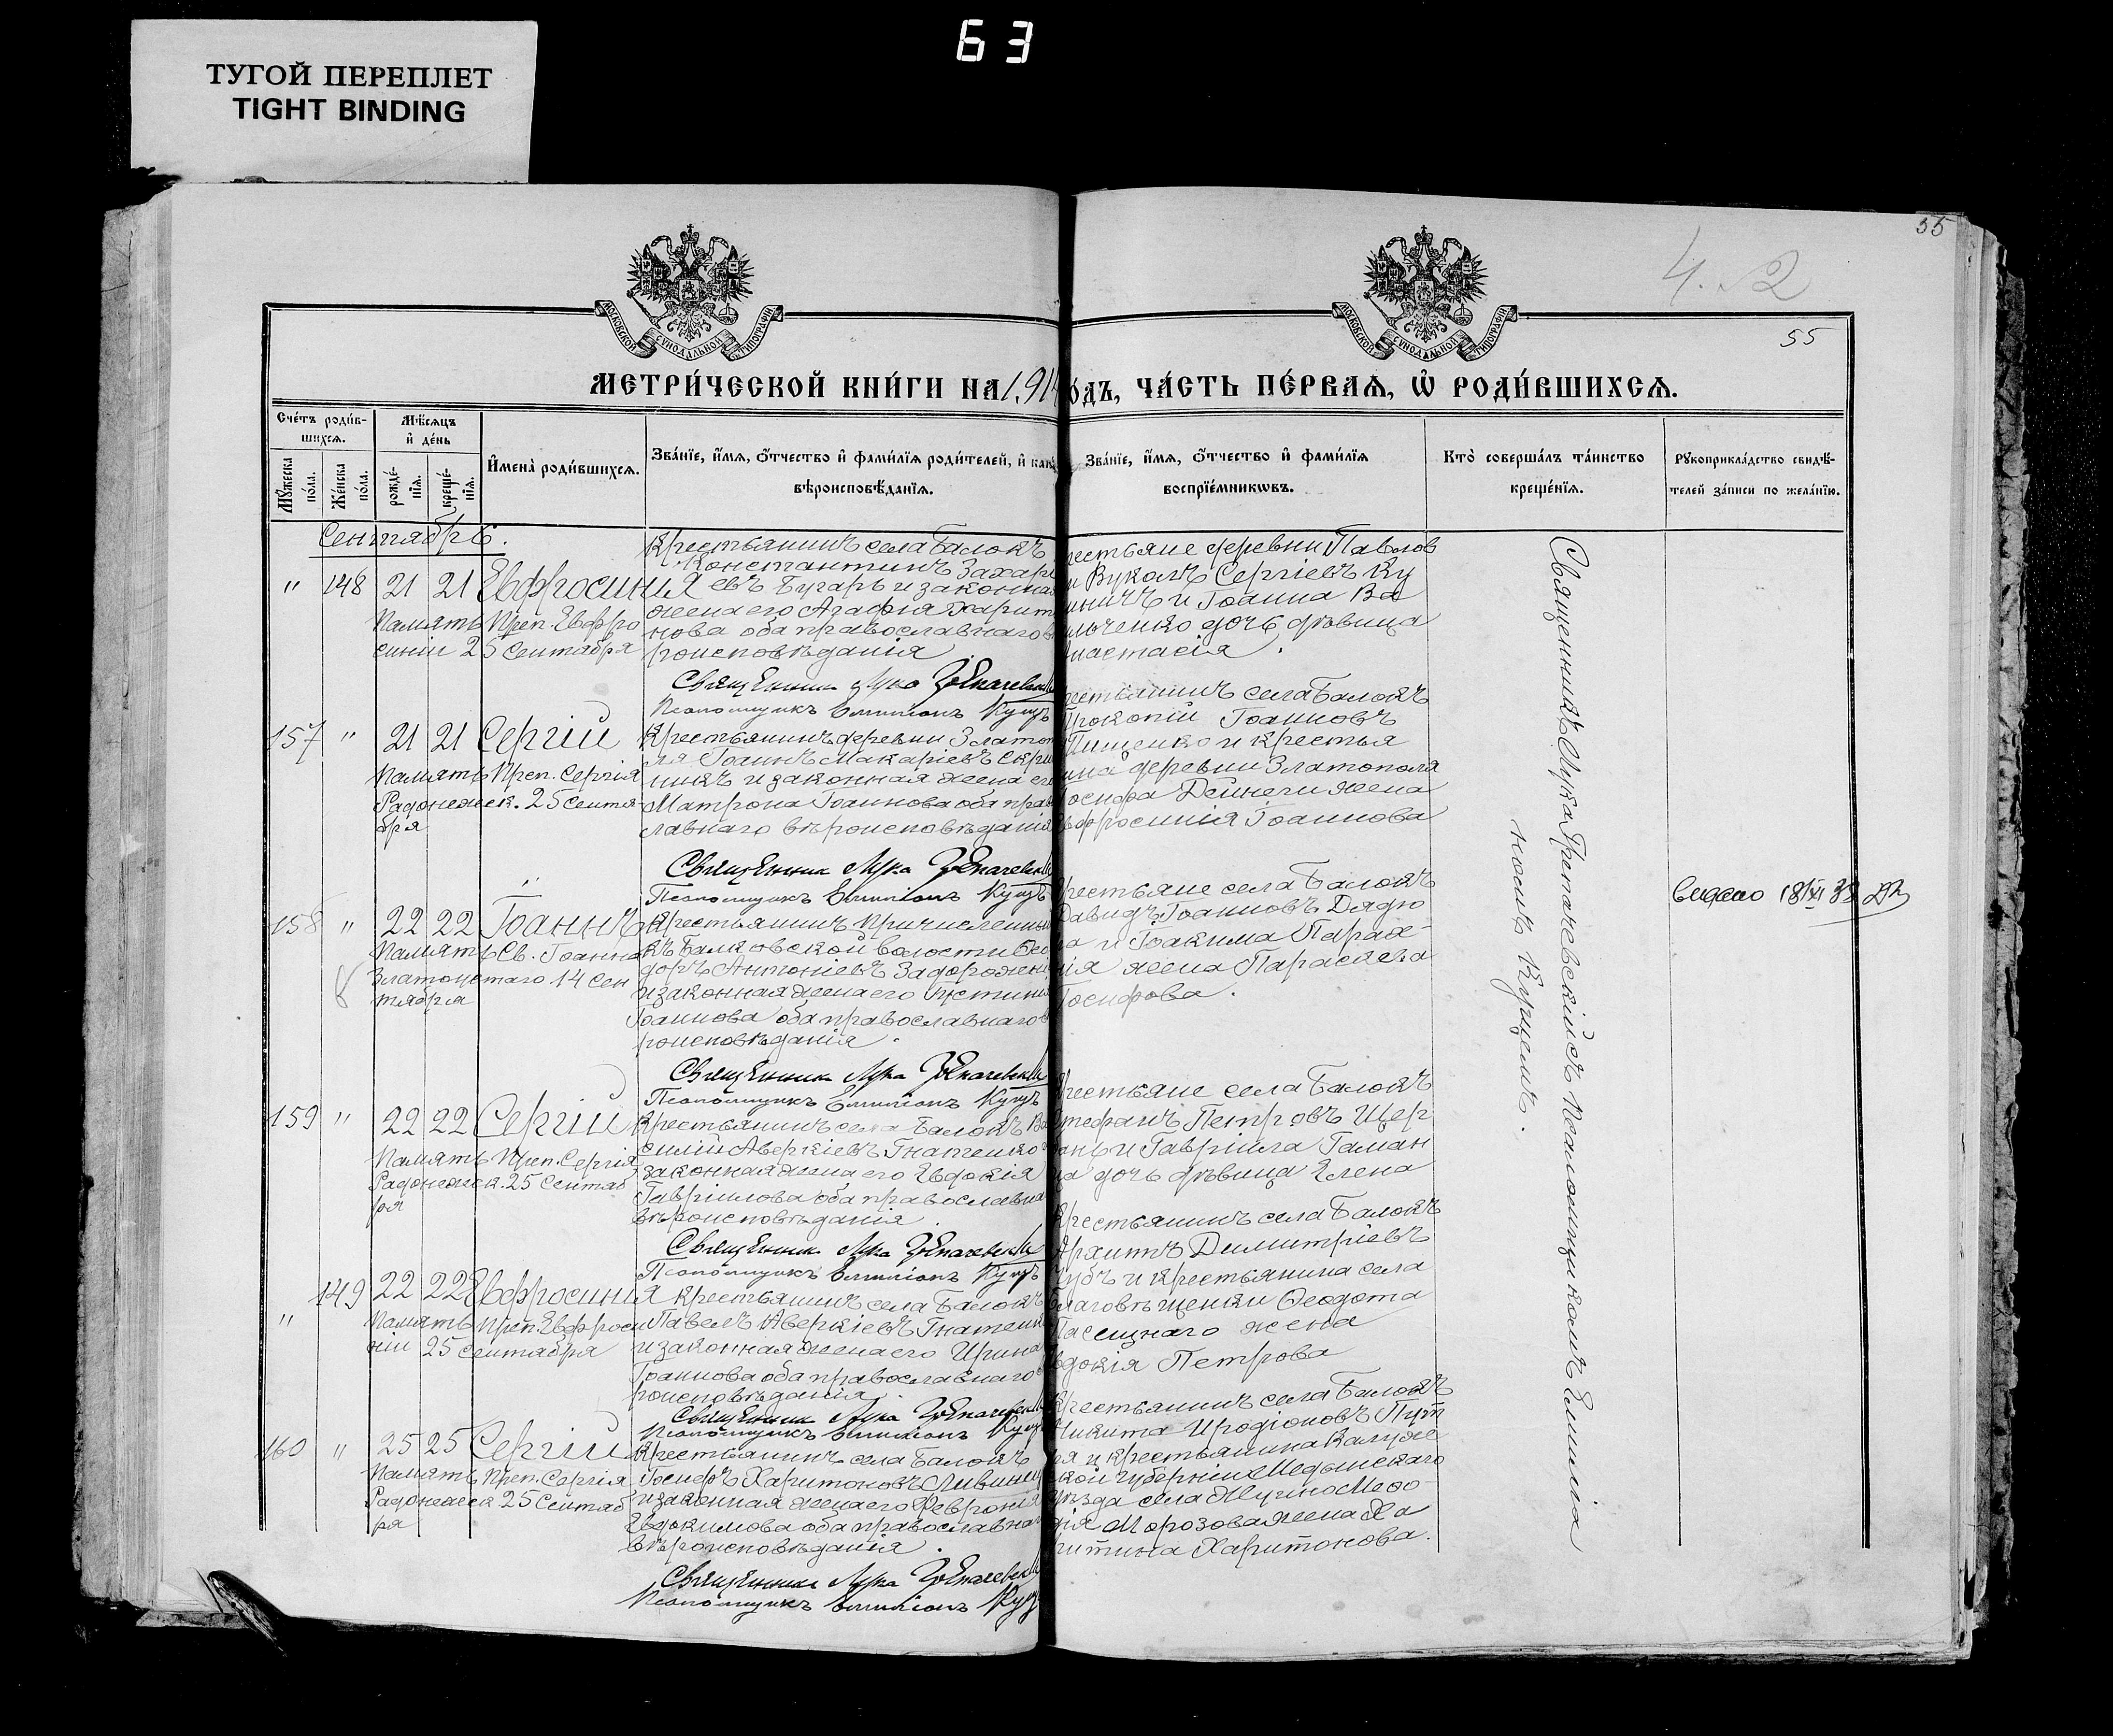 63
ТУГОЙ ПЕРЕПЛЕТ
TIGHT BINDING
55
4. 2
55
МОСКОВСКОЙ СѴНОДАЛЬНОЙ ТИПОГРАФІИ
МОСКОВСКОЙ СѴНОДАЛЬНОЙ ТИПОГРАФІИ
МЕТРИ́ЧЕСКОЙ КНИ́ГИ НА 1914
ОДЪ, ЧА́СТЬ ПЕ́РВАѦ, Ѽ РОДИ́ВШИХСѦ.
Сче́тъ роди́в-
шихсѧ.
Мѣ́сѧцъ
и҆ де́нь
Мꙋ́жеска по́ла.
Же́нска по́ла.
рожде́-нїѧ.
креще́-нїѧ.
И҆мена̀ роди́вшихсѧ.
Зва́нїе, и҆́мѧ, ѻ҆́тчество и҆ фами́лїѧ роди́телей, и҆ как
вѣроисповѣ́данїѧ.
Зва́нїе, и҆́мѧ, ѻ҆́тчество и҆ фами́лїѧ
воспрїе́мникѡвъ.
Кто̀ соверша́лъ та́инство
креще́нїѧ.
Рꙋкоприкла́дство свидѣ́-
телей за́писи по жела́нїю.
Сентябрь.
" 148 21 21 Евфросинія
Память Преп. Евфро
синіи 25 Сентября
Крестьянинъ села Балокъ
Константинъ Захарі
евъ Бугаръ и законная
жена его Агафія Харито
нова оба православнаго в
роисповѣданія
Священникъ Лука
Псаломщикъ Емиліонъ Купц
рестьяне деревни Павлов
и Вуколъ Сергіевъ Ку
иничъ и Іоанна Ва
ильченко дочь дѣвица
настасія.
157 " 21 21 Сергій
Память Преп. Сергія
Радонежск. 25 Сентя
бря
Крестьянинъ деревни Златопо
ля Іоаннъ Макаріевъ Скри
никъ и законная жена его
Матрона Іоаннова оба прав
лавнаго вѣроисповѣданія
Священникъ Лука
Псаломщикъ Емиліонъ Купц
рестьянинъ села Балокъ
Прокопій Іоанновъ
Пищенко и крестья
ина деревни Златополя
осифа Дейнеги жена
вфросинія Іоаннова
158 " 22 22 Іоаннъ
Память Св. Іоанна
Златоустаго 14 Сен
тября
Крестьянинъ причисленный
къ Балковской волости Ѳео
доръ Антоніевъ Задорожн
и законная жена его Іустинія
Іоаннова оба православнаго в
роисповѣданія.
Священникъ Лука
Псаломщикъ Емиліонъ Купц
рестьяне села Балокъ
Давидъ Іоанновъ Дядю
ра и Іоакима Параж-
нія жена Параскева
Іосифова.
159 " 22 22 Сергій
Память Преп. Сергія
Радонежск. 25 Сентяб
ря
Крестьянинъ села Балокъ Ва
силій Аверкіевъ Гнатенко
законная жена его Евдокія
Гавріилова оба православна
вѣроисповѣданія.
Священникъ Лука
Псаломщикъ Емиліонъ Купц
рестьяне села Балокъ
тефанъ Петровъ Щер
ань и Гавріила Гаман
ца дочь дѣвица Елена
" 149 22 22 Евфросинія
Память преп. Евфроси
ніи 25 Сентября
Крестьянинъ села Балокъ
Павелъ Аверкіевъ Гнатенк
и законная жена его Ирина
Іоаннова оба православнаго
роисповѣданія.
Священникъ Лука
Псаломщикъ Емиліонъ Купц
Крестьянинъ села Балокъ
Архипъ Димитріевъ
убъ и крестьянина села
лаговѣщенки Ѳеодота
Пасещнаго жена
вдокія Петрова
160 " 25 25 Сергій
Память Преп. Сергія
Радонежск 25 Сентяб
ря
Крестьянинъ села Балокъ
Іосифъ Харитоновъ Ливинец
и законная жена его Февронія
Евдокимова оба православнаг
вѣроисповѣданія.
Священникъ Лука
Псаломщикъ Емиліонъ Купц
Крестьянинъ села Балокъ
Никита Иродіоновъ Пут
ря и крестьянина Калуж
ской губерніи Медынскаго
уѣзда села Меѳо-
дія Морозова жена Ха
ритина Харитонова.
Священникъ Лука съ псаломщикомъ Емилія
номъ Купцемъ.
видано 18/VI 38